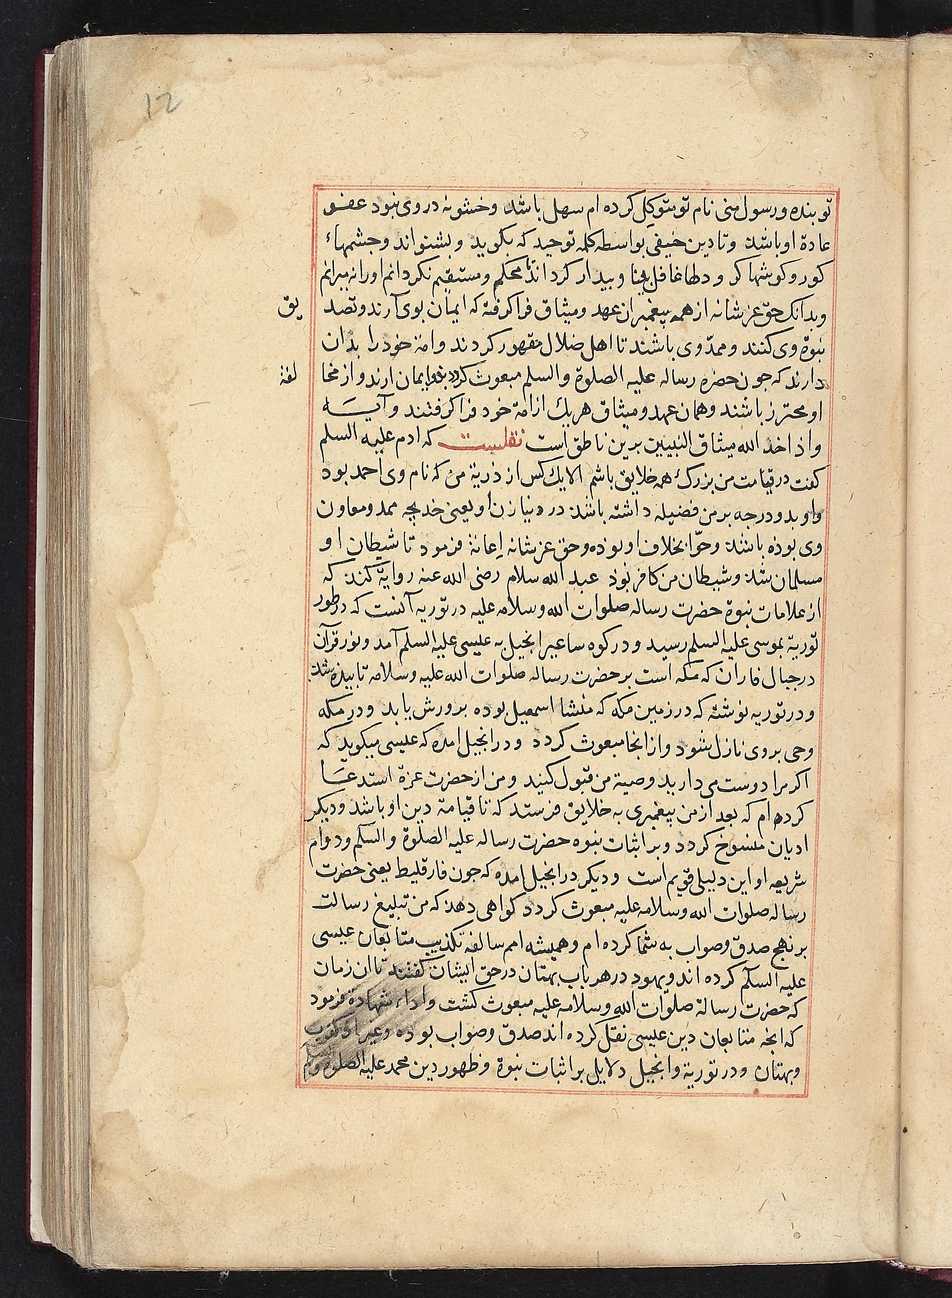 12
تو بنده و رسول منی نام تو متوکل کرده ام سهل باشد و خشونة در وی نبود عفو
عادة او باشد و تا دین حنیفی بواسطه کلمه توحید که بکوید و بشنواند و چشمهاء
کور و کوشها کر و دلها غافل بینا و بیدار کرداند محکم و مستقیم نکردانم او را نمیرانم
و بدانک حق عز شانه از همه پیغمبران عهد و میثاق فرا کرفته که ایمان بوی آرند و تصد
یق
نبوة وی کنند و ممد وی باشند تا اهل ضلال مقهور کردند و امة خود را بدان
دارند که جون حضرة رسالة علیه الصلوة والسلم مبعوث کردد بدو ایمان ارند و از مخا
لفة
او محترز باشند و همان عهد و میثاق هریک از امة خود فرا کرفتند و آیــه
واذ اخذ الله میثاق النبیین برین ناطق است نقلست که ادم علیه السلم
کفت در قیامت من بزرک همه خلایق باشم الا یک کس از ذریة من که نام وی احمد بود
و او بدو درجه بر من فضیله داشته باشد در دنیا زن او یعنی خدیجه ممد و معاون
وی بوده باشد و حوا بخلاف او بوده و حق عز شانه اعانة فرمود تا شیطان او
مسلمان شد و شیطان من کافر بود عبد الله سلام رضی الله عنه روایة کند که
از علامات نبوة حضرت رسالة صلوات الله وسلامه علیه در توریه آنست که در طور
توریة بموسی علیه السلم رسید و در کوه ساعیر انجیل به عیسی علیه السلم آمد و نور قرآن
در جبال فاران که مکه است بر حضرت رسالة صلوات الله علیه وسلامه تابیده شد
و در توریه نوشته که در زمین مکه که منشا اسمعیل بوده برورش یابد و در مکه
وحی بروی نازل شود و از انجا مبعوث کردد و در انجیل امده که عیسی میکوید که
اکر مرا دوست می دارید وصیة من قبول کنید و من از حضرت عزة استدعا
کرده ام که بعد از من پیغمبری به خلایق فرستد که تا قیامة دین او باشد و دیکر
ادیان منسوخ کردد و بر اثبات نبوه حضرت رسالة علیه الصلوة والسلم و دوام
شریعه او این دلیلی قویم است و دیکر در انجیل امده که جون فارقلیط یعنی حضرت
رسالة صلوات الله وسلامه علیه مبعوث کردد کواهی دهد که من تبلیغ رسالت
بر نهج صدق و صواب به شما کرده ام و همیشه امم سالفه تکذیب متابعان عیسی
علیه السلم کرده اند و یهود در هر باب بهتان در حق ایشان کفتند تا ان زمان
که حضرت رسالة صلوات الله وسلامه علیه مبعوث کشت و اداء شهادة فرمود
که انجه متابعان دین عیسی نقل کرده اند صدق و صواب بوده و غیر ان کذب
و بهتان و در توریة و انجیل دلایل بر اثبات نبوة و ظهور دین محمد علیه الصلوة والسلم